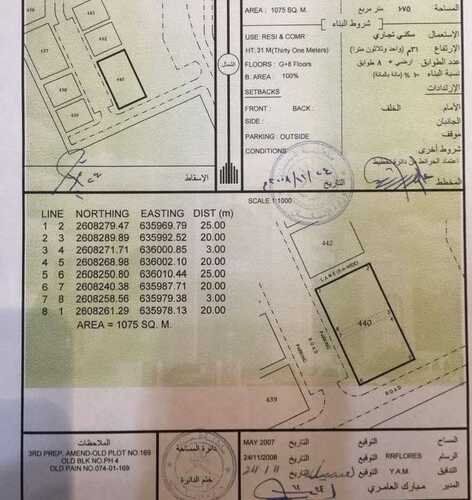 AREA : 1075 SQ. M. ١٠٧٥ متر مربع المساحة
شروط البناء
USE: RESI & COMR سكني تجاري الاستعمال
HT: 31 M(Thirty One Meters) ٣١م (واحد وثلاثون مترا) الإرتفاع
FLOORS: G+8 Floors ارضي + ٨ طوابق عدد الطوابق
B. AREA : 100% ١٠٠% (مائة بالمائة) نسبة البناء
SETBACKS الإرتدادات
FRONT : BACK : الخلف الأمام
SIDE : الجانبان
PARKING : OUTSIDE موقف
CONDITIONS شروط أخرى
التاريخ
المخطط
الشمال
الإسقاط
440
SCALE 1:1000
LINE NORTHING EASTING DIST (m)
1 2 2608279.47 635969.79 25.00
2 3 2608289.89 635992.52 20.00
3 4 2608271.71 636000.85 3.00
4 5 2608268.98 636002.10 20.00
5 6 2608250.80 636010.44 25.00
6 7 2608240.38 635987.71 20.00
7 8 2608258.56 635979.38 3.00
8 1 2608261.29 635978.13 20.00
AREA = 1075 SQ. M.
442
440
PARKING
ROAD
PARKING
ROAD
639
الملاحظات
3RD PREP. AMEND-OLD PLOT NO.169
OLD BLK NO.PH 4
OLD PAIN NO.074-01-169
دائرة المساحة
ختم الدائرة
MAY 2007 التاريخ التوقيع
24/11/2008 التاريخ RRFLORES التوقيع الرسام
24/11 التاريخ Y.A.M. التوقيع التدقيق
التاريخ التوقيع مبارك العامري المدير